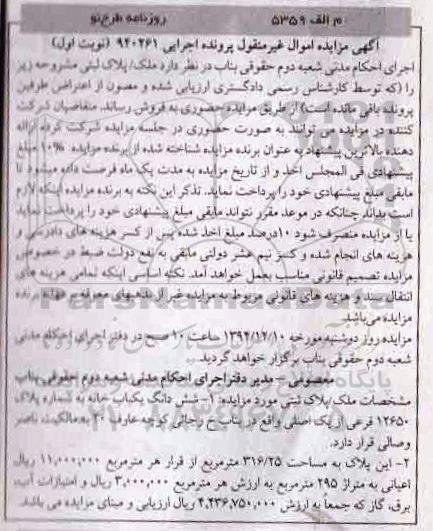 م الف ۵۳۵۹ روزنامه طرح‌نو
آگهی مزایده اموال غیرمنقول پرونده اجرایی ۹۴۰۲۶۱ (نوبت اول)
اجرای احکام مدنی شعبه دوم حقوقی بناب در نظر دارد ملک/پلاک ثبتی مشروحه زیر
را (که توسط کارشناس رسمی دادگستری ارزیابی شده و مصون از اعتراض طرفین
پرونده باقی مانده است) از طریق مزایده حضوری به فروش رساند. متقاضیان شرکت
کننده در مزایده می توانند به صورت حضوری در جلسه مزایده شرکت کرده ارائه
دهنده بالاترین پیشنهاد به عنوان برنده مزایده شناخته شده از برنده مزایده ۱۰% مبلغ
پیشنهادی فی المجلس اخذ و از تاریخ مزایده به مدت یک ماه فرصت داده میشود تا
مابقی مبلغ پیشنهادی خود را پرداخت نماید. تذکر این نکته به برنده مزایده اینکه لازم
است بداند چنانکه در موعد مقرر نتواند مابقی مبلغ پیشنهادی خود را پرداخت نماید
یا از مزایده منصرف شود ۱۰درصد مبلغ اخذ شده پس از کسر هزینه های دادرسی و
هزینه های انجام شده و کسر نیم عشر دولتی مابقی به نفع دولت ضبط در خصوص
مزایده تصمیم قانونی مناسب بعمل خواهد آمد. نکته اساسی اینکه تمامی هزینه های
انتقال سند و هزینه های قانونی مربوط به مزایده غیر از بدهیهای معرفه بر عهده برنده
مزایده می‌باشد.
مزایده روز دوشنبه مورخه ۱۳۹۴/۱۲/۱۰ ساعت ۱۰ صبح در دفتر اجرای احکام مدنی
شعبه دوم حقوقی بناب برگزار خواهد گردید.
معصومی – مدیر دفتر اجرای احکام مدنی شعبه دوم حقوقی بناب
مشخصات ملک/پلاک ثبتی مورد مزایده: ۱- شش دانگ یکباب خانه به شماره پلاک
۱۲۶۵۰ فرعی از یک اصلی واقع در بناب خ رجائی کوچه عارف ۲۰ به مالکیت ناصر
وصالی قرار دارد.
۲- این پلاک به مساحت ۳۱۶/۲۵ مترمربع از قرار هر مترمربع ۱۱,۰۰۰,۰۰۰ ریال
اعیانی به متراژ ۲۹۵ مترمربع به ارزش هر مترمربع ۳,۰۰۰,۰۰۰ ریال و امتیازات آب،
برق، گاز که جمعاً به ارزش ۴,۴۳۶,۷۵۰,۰۰۰ ریال ارزیابی و مبنای مزایده می باشد.